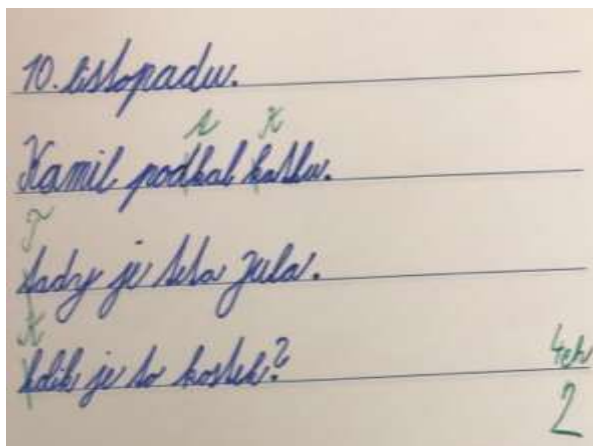 10. listopadu.
t K
Kamil podkal katku.
T
tady je teta jula.
K
kolik je to kostek? 4ch
2